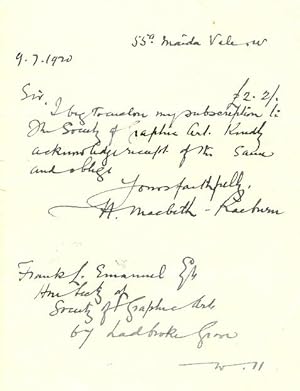 55a Maida Vale W
9.7.1920
Sir, £2.2/-
I beg to enclose my subscription to
The Society of Graphic Art. Kindly
acknowledge receipt of the same
and oblige
Yours faithfully,
H. Macbeth-Raeburn
Frank L. Emanuel Esq
Hon Secty of
Society of Graphic Arts
Ladbroke Grove
W. 11